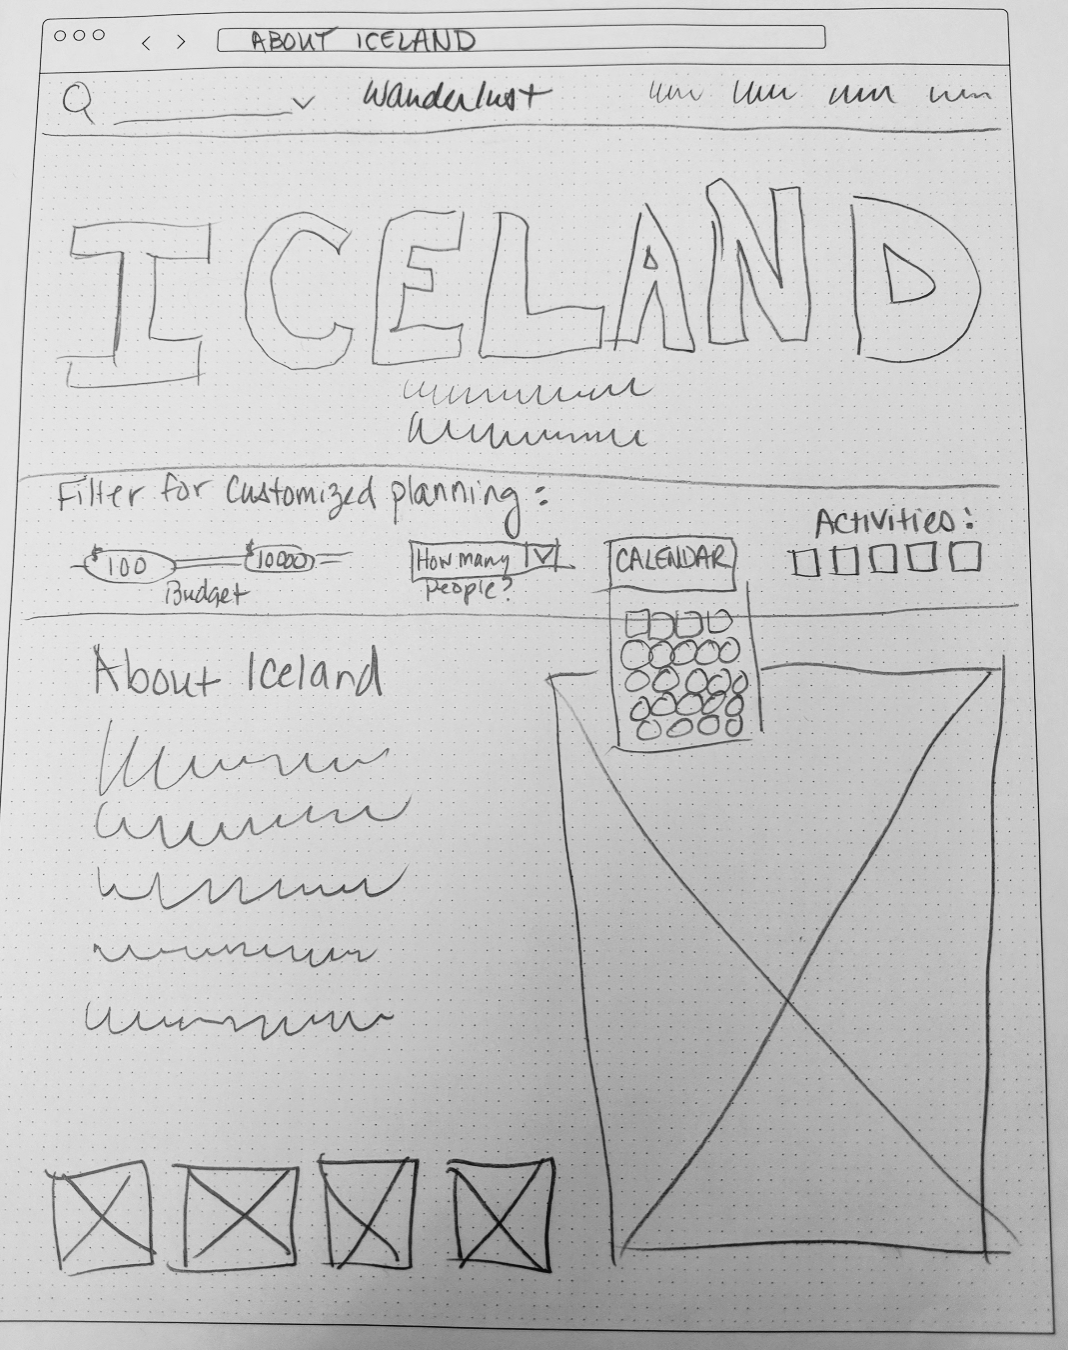 ABOUT ICELAND
Wanderlust
ICELAND
Filter for Customized planning:
Activities:
$100
$10000
Budget
How many
People?
CALENDAR
About Iceland